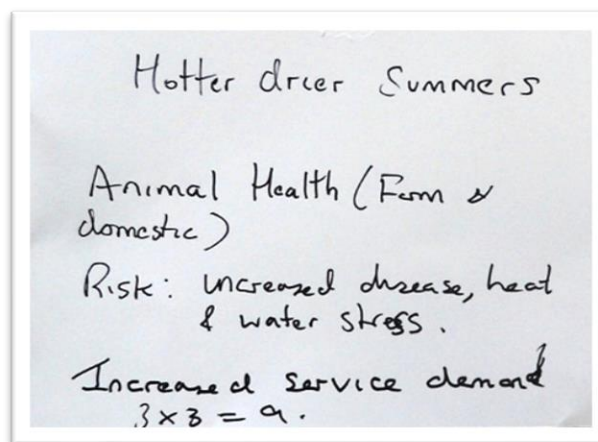 Hotter drier Summers
Animal Health (Farm &
domestic)
Risk: increased disease, heat
& water stress.
Increased service demand
3 x 3 = 9.